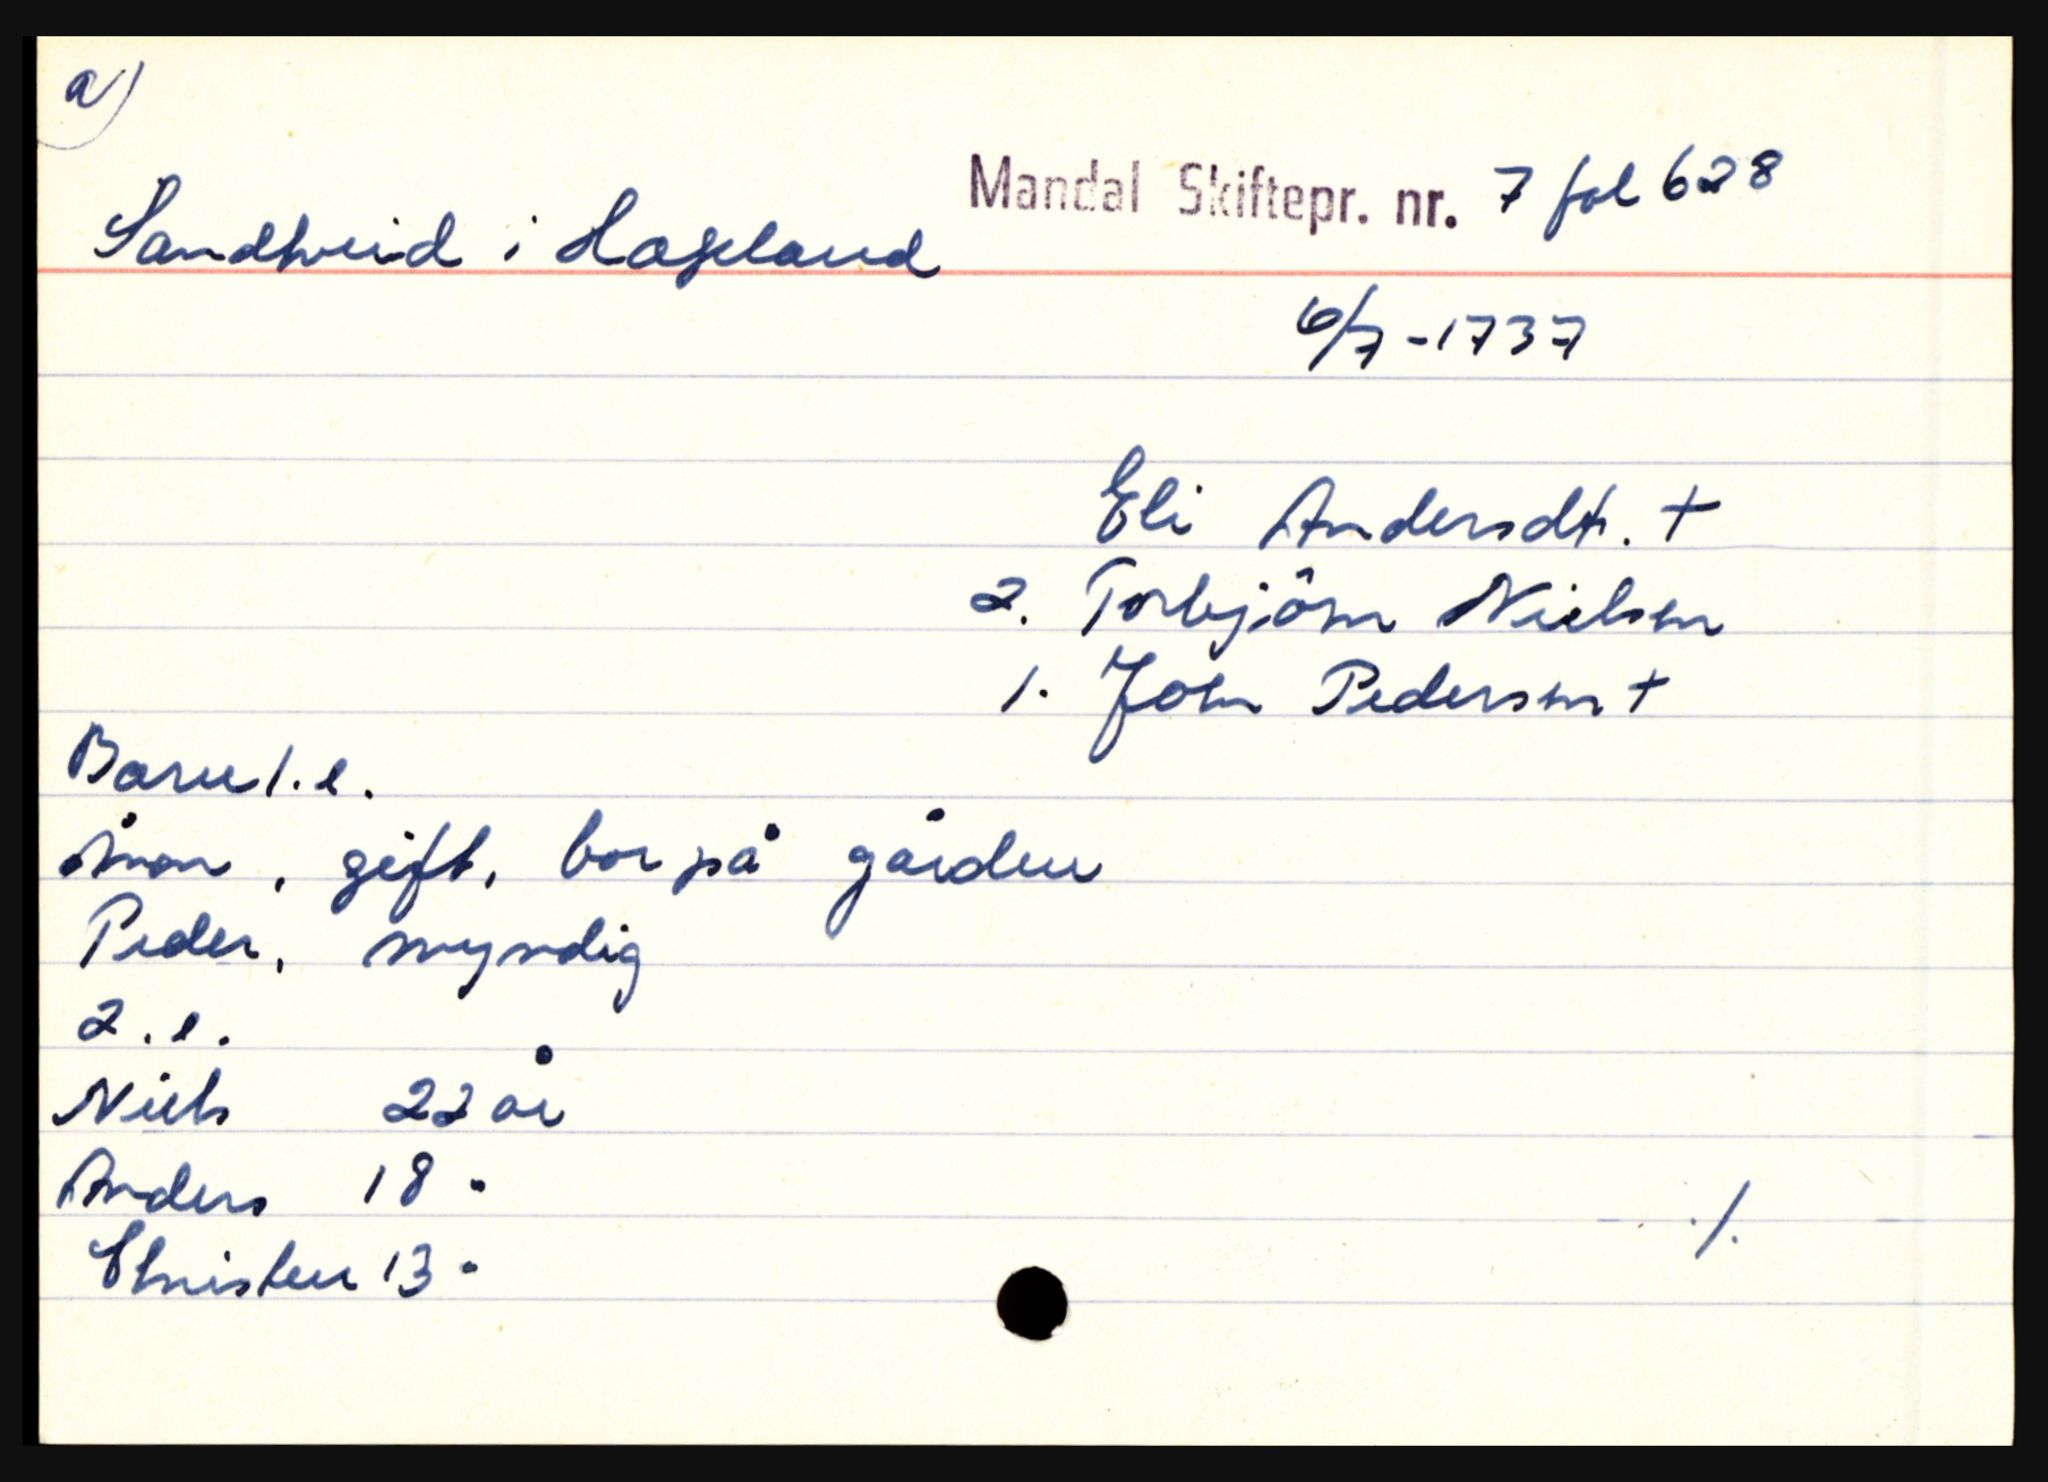 a)
Mandal Skiftepr. nr. 7 fol 628
Sandhveid i Hægeland
6/7 - 1737
Eli Andersdt. +
2. Torbjörn Nielsen
1. John Pedersen +
Barn 1. e.
Åmon, gift, bor på gården
Peder, myndig
2. e.
Niels 22 år
Anders 18 "
Christen 13 "
./.